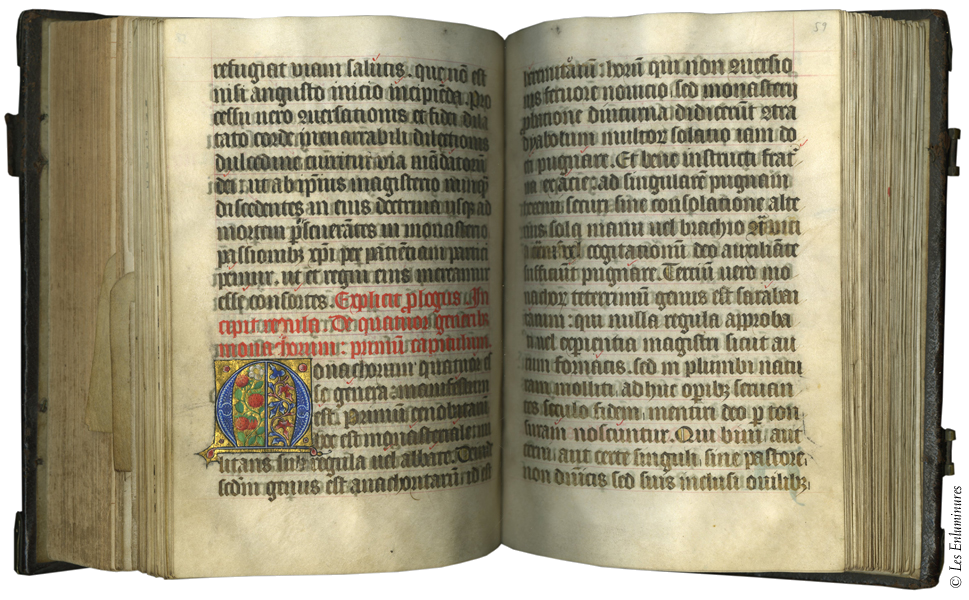 refugiat viam salutis. que nō est
nisi angusto inicio incipiēda. Pro
cessu vero ꝯversationis et fidei dila
tato corde inenarrabili dilectionis
dulcedine curritur via mādatorū
dei: ut ab ipīus magisterio nunqͣ
discedentes in eius doctrina usqꝫ ad
mortem ꝑseverātes in monasterio
passionibus xp̄i per patienciam partici
pemur. ut et regni eius mereamur
esse consortes. Explicit ꝓlogus In
cipit regula De quatuor generibꝫ
monachorum: primū capitulum.
Monachorum quatuor es
se genera: manifestum
est. Primum cenobitarū
hoc est monasteriale: mi
litans sub regula vel abbate. Deinde
scdm̄ genus est anachoritarū id est
59
heremitarū: horū qui non ꝯversio
nis fervore novicio sed monasterij
ꝓbatione diuturna didicerūt ꝯtra
dyabolum multoꝝ solatio iam do
cti pugnare. Et bene instructi frat̄
na ex acie: ad singularē pugnam
heremi securi sine consolatione alte
rius sola manu vel brachio ꝯtͣ vici
a carnis vel cogitationū deo auxiliāte
sufficiūt pugnare. Terciū vero mo
nachoꝝ teterrimū genus est sarabai
tarum: qui nulla regula approba
ti vel experientia magistri sicut au
rum fornacis. sed in plumbi natu
ram molliti adhuc opibꝫ servan
tes seculo fidem. mentiri deo ꝑ ton
suram noscuntur. Qui bini aut
terni aut certe singuli sine pastore
non dn̄icis sed suis inclusi ovilibꝫ
© Les Enluminures